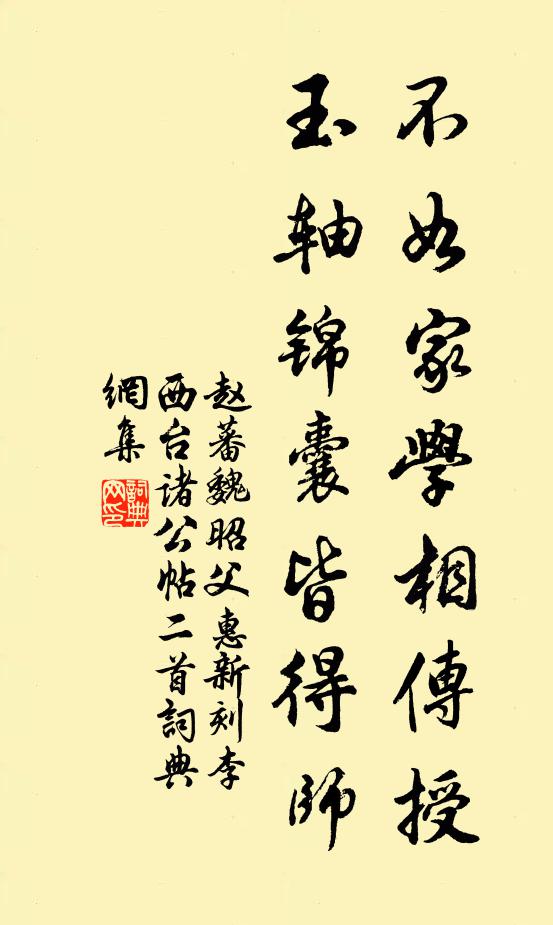 不如家學相傳授
玉軸錦囊皆得師
赵蕃魏昭父惠新刻李
西台诸公帖二首詞典
網集
詞典網印